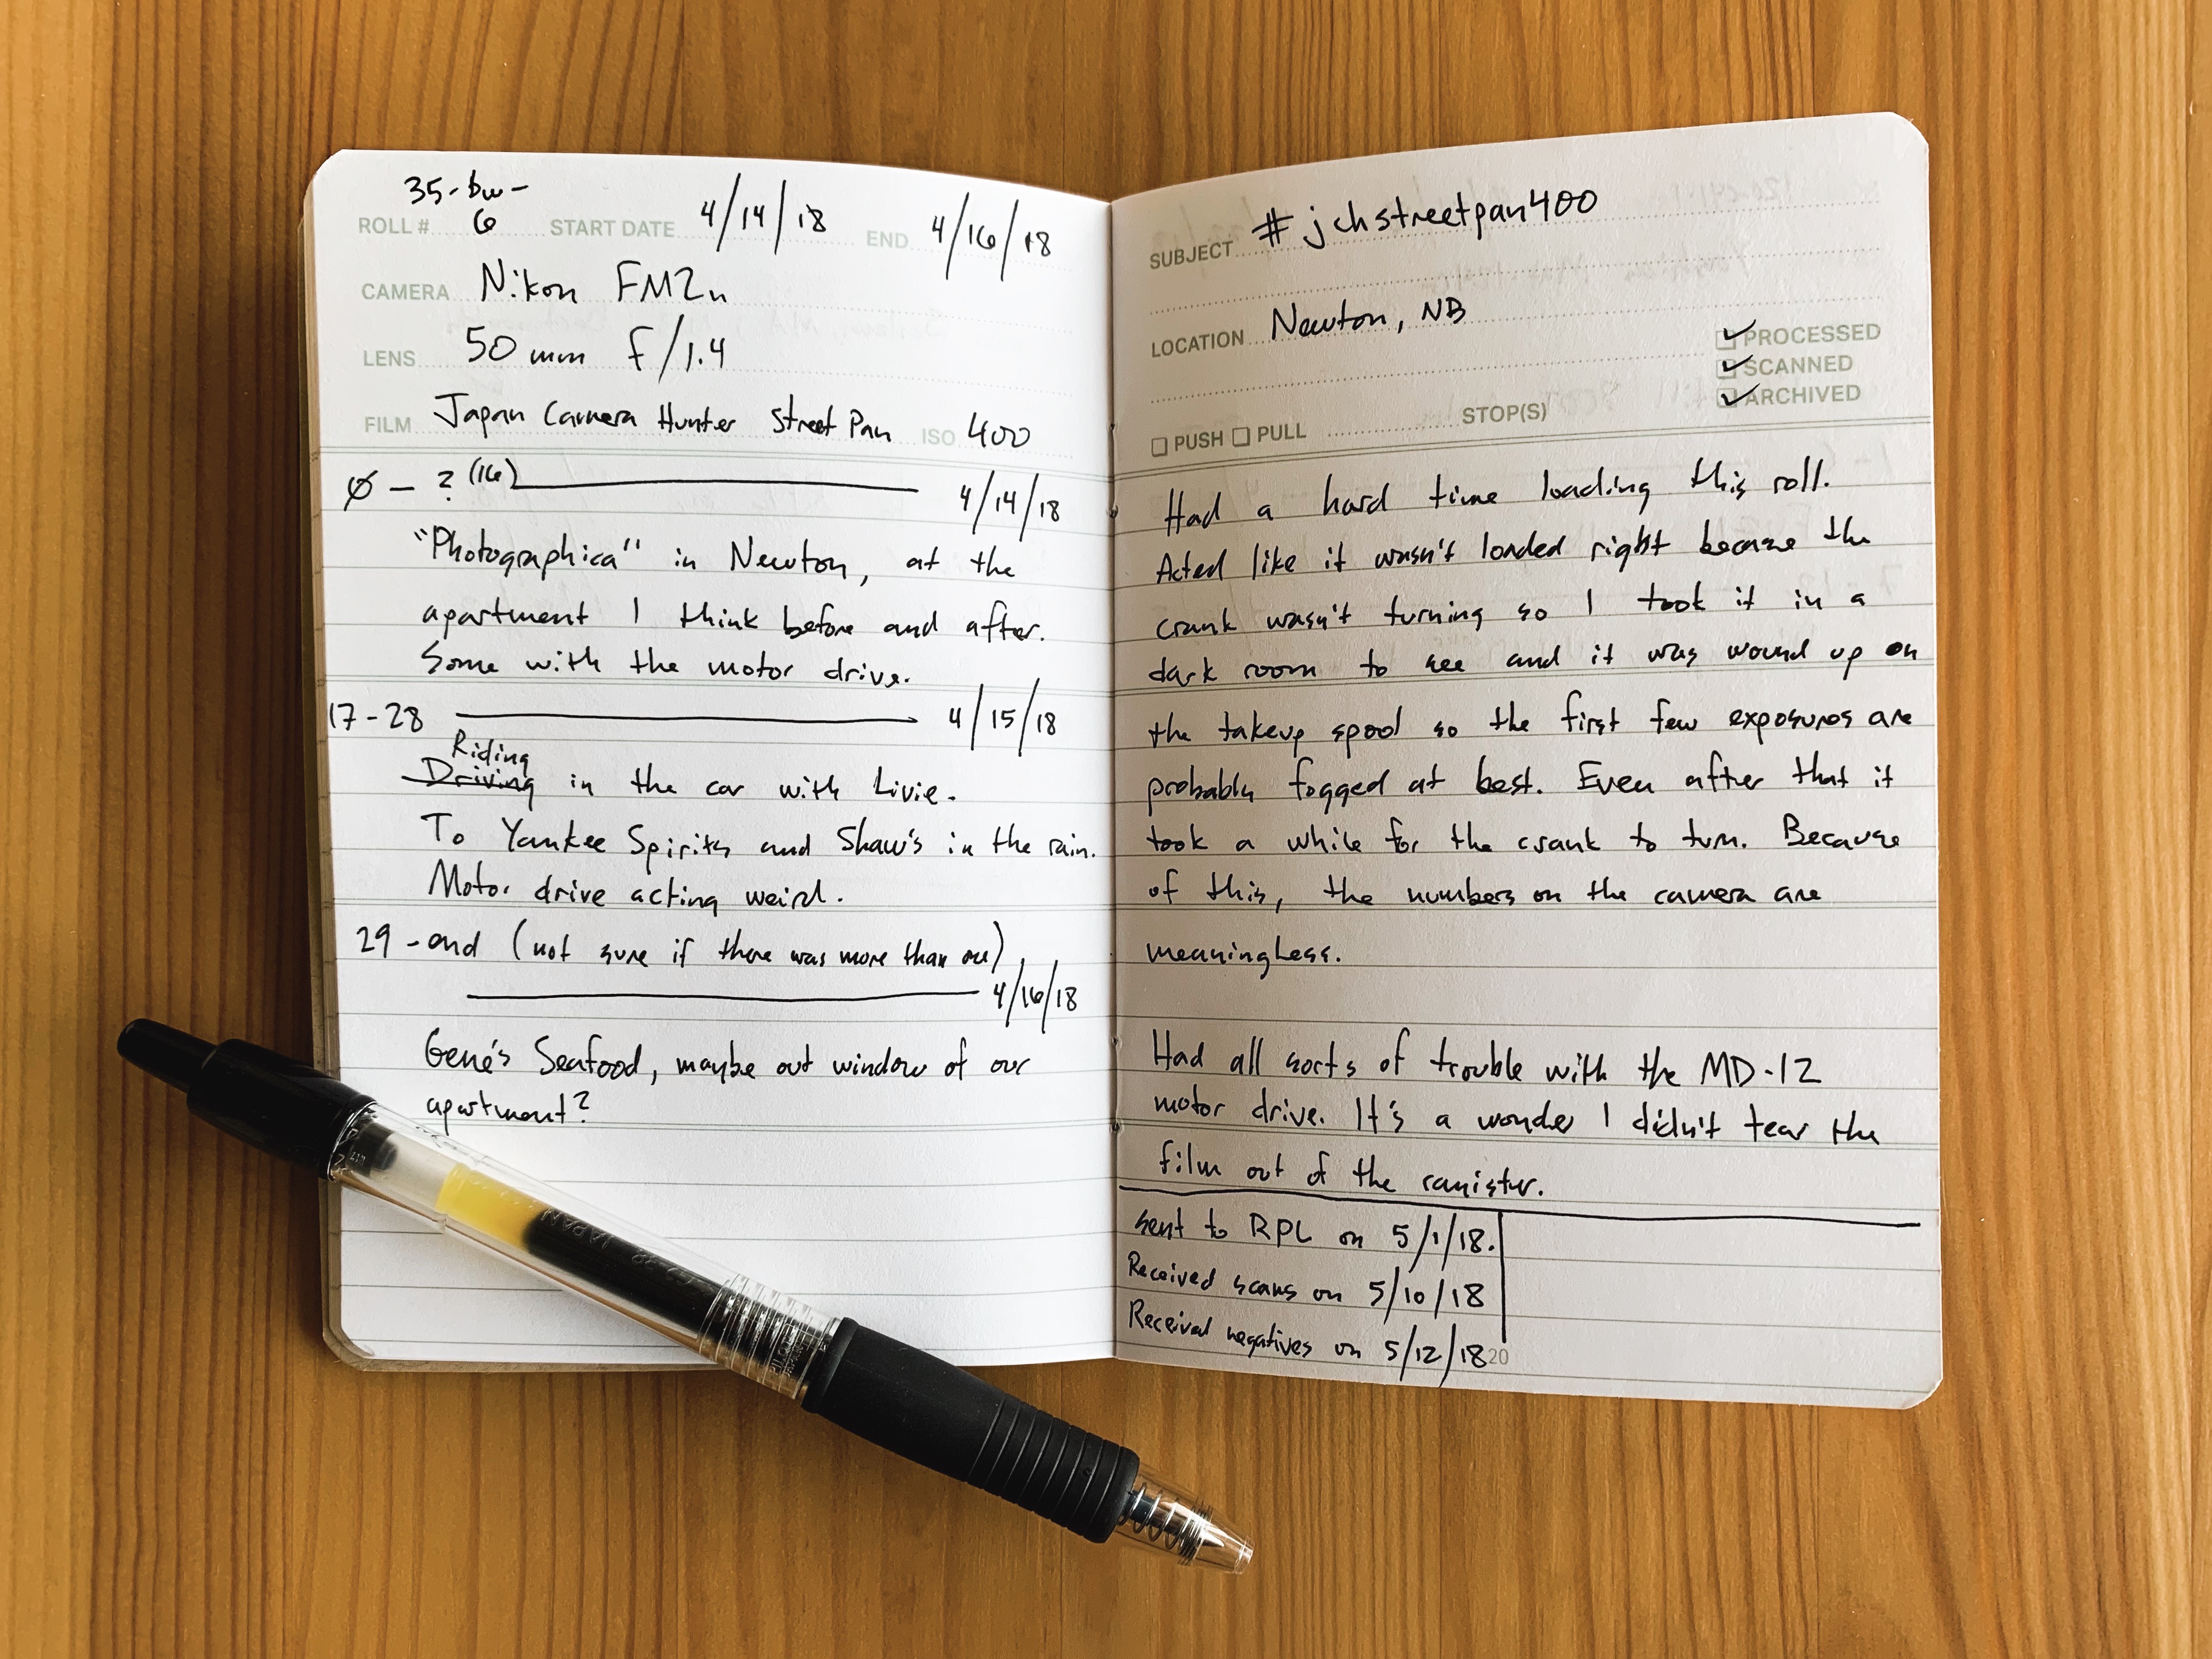 35-bw-
ROLL # 6 START DATE 4/14/18 END 4/16/18
CAMERA Nikon FM2n
LENS 50mm f/1.4
FILM Japan Camera Hunter Street Pan ISO 400
Ø - ? (16) 4/14/18
"Photographica" in Newton, at the
apartment I think before and after.
Some with the motor drive.
17-28 4/15/18
Riding
Driving in the car with Livie.
To Yankee Spirits and Shaw's in the rain.
Motor drive acting weird.
29-end (not sure if there was more than one)
4/16/18
Gene's Seafood, maybe out window of our
apartment?
SUBJECT #jchstreetpan400
LOCATION Newton, NB
PROCESSED
SCANNED
ARCHIVED
PUSH PULL STOP(S)
Had a hard time loading this roll.
Acted like it wasn't loaded right because the
crank wasn't turning so I took it in a
dark room to see and it was wound up on
the takeup spool so the first few exposures are
probably fogged at best. Even after that it
took a while for the crank to turn. Because
of this, the numbers on the camera are
meaningless.
Had all sorts of trouble with the MD-12
motor drive. It's a wonder I didn't tear the
film out of the canister.
sent to RPL on 5/1/18.
Received scans on 5/10/18
Received negatives on 5/12/18
20
JAPAN